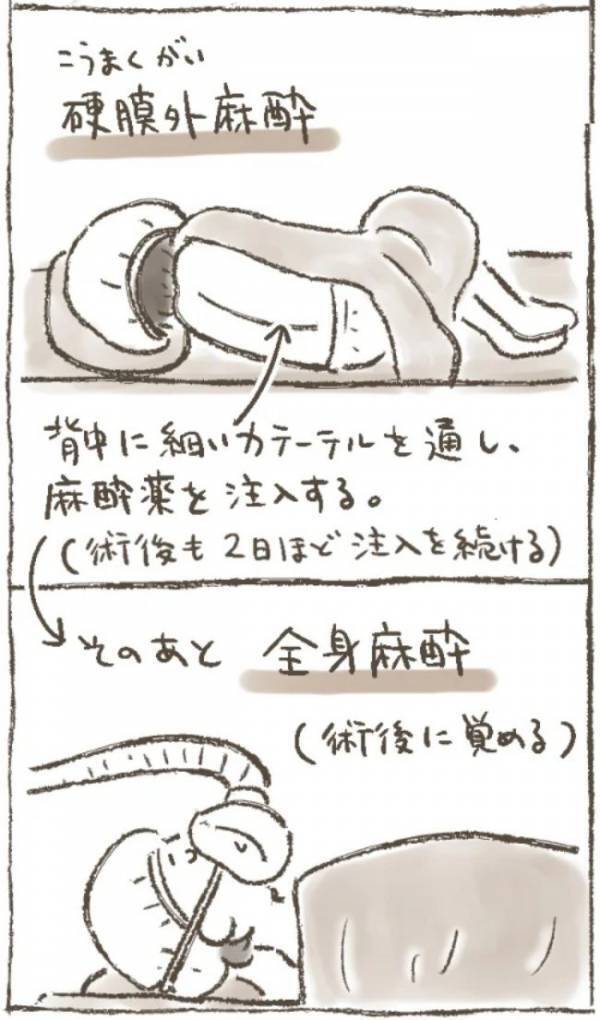 こうまくがい
硬膜外麻酔
背中に細いカテーテルを通し、
麻酔薬を注入する。
(術後も2日ほど注入を続ける)
そのあと 全身麻酔
(術後に覚める)